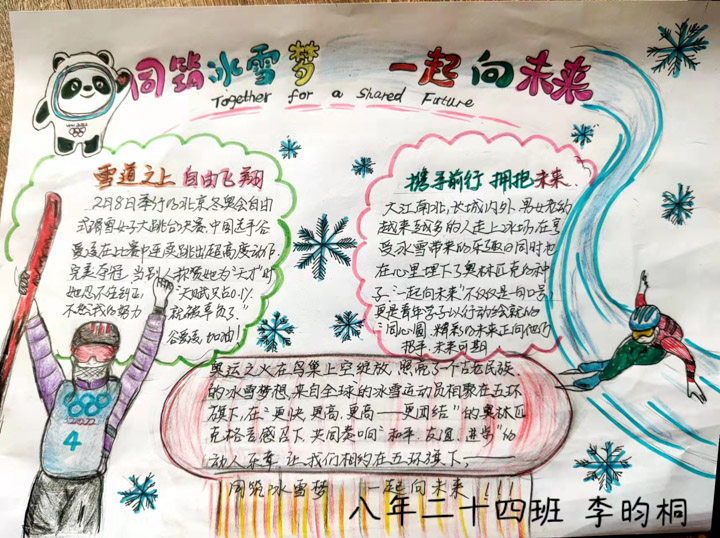 同筑冰雪梦 一起向未来
Together for a Shared Future
雪道之上 自由飞翔
2月8日举行的北京冬奥会自由
式滑雪女子大跳台决赛,中国选手谷
爱凌在比赛中连度跳出超高度动作,
完美夺冠,当别人称赞她为“天才”时
她忍不住纠正,“天赋只占0.1%
不然我的努力 就被辜负了.”
谷爱凌,加油!
携手前行 拥抱未来.
大江南北,长城内外,男女老幼
越来越多的人走上冰场,在享
受冰雪带来的乐趣の同时也
在心里埋下了奥林匹克的种
子,“一起向未来”不仅仅是一句口号,
更是青年学子以行动绘就的
“同心圆,精彩的未来正向他们
招手,未来可期
奥运之火在鸟巢上空绽放,照亮了一个古老民族
的冰雪梦想,来自全球的冰雪运动员相聚在五环
旗下,在“更快、更高、更高——更团结”的奥林匹
克格言感召下,共同奏响“和平、友谊、进步”的
动人乐章,让我们相约在五环旗下,——
同筑冰雪梦 一起向未来!!!
2022
4
八年二十四班 李昀桐